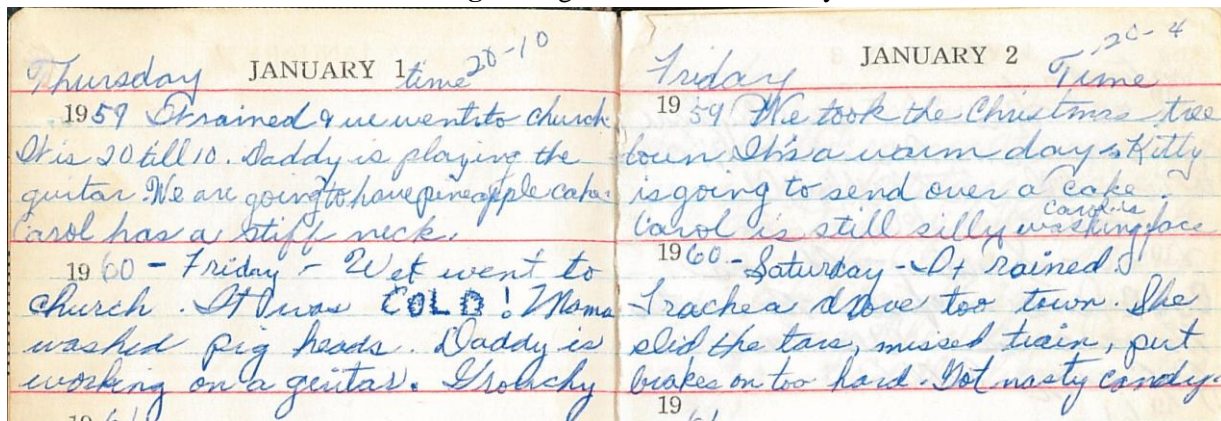 Thursday JANUARY 1 time 20-10
1959 It rained & we went to church
It is 20 till 10. Daddy is playing the
guitar. We are going to have pineapple cake.
Carol has a stiff neck.
1960 - Friday - Wet went to
church. It was COLD! Mama
washed pig heads. Daddy is
working on a guitar. Grouchy
Friday JANUARY 2 Time 20-4
1959 We took the Christmas tree
down It's a warm day & Kitty
is going to send over a cake.
Carol is still silly Carol is washing face
1960 - Saturday - It rained.
Trachea drove too town. She
slid the tars, missed train, put
brakes on too hard. Got nasty candy.
19